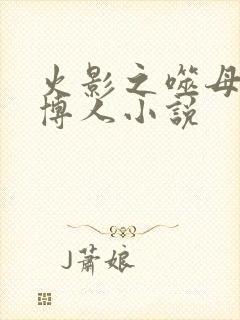 火影之噬母
博人小说
J萧娘